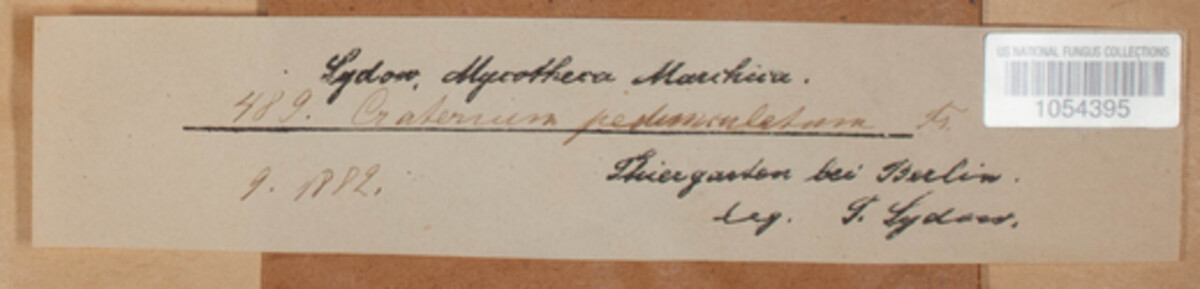 Sydow, Mycotheca Marchica.
489. Craterium pedunculatum Fr.
9. 1882.
Thiergarten bei Berlin.
leg. P. Sydow.
US NATIONAL FUNGUS COLLECTIONS
1054395